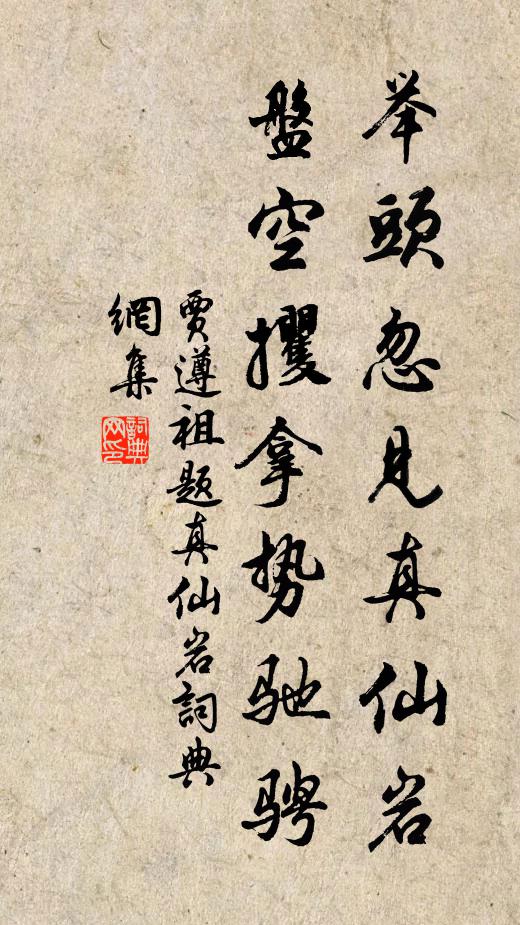 举頭忽见真仙岩
盤空攫拿势驰骋
贾遵祖题真仙岩詞典
網集
詞典
网印